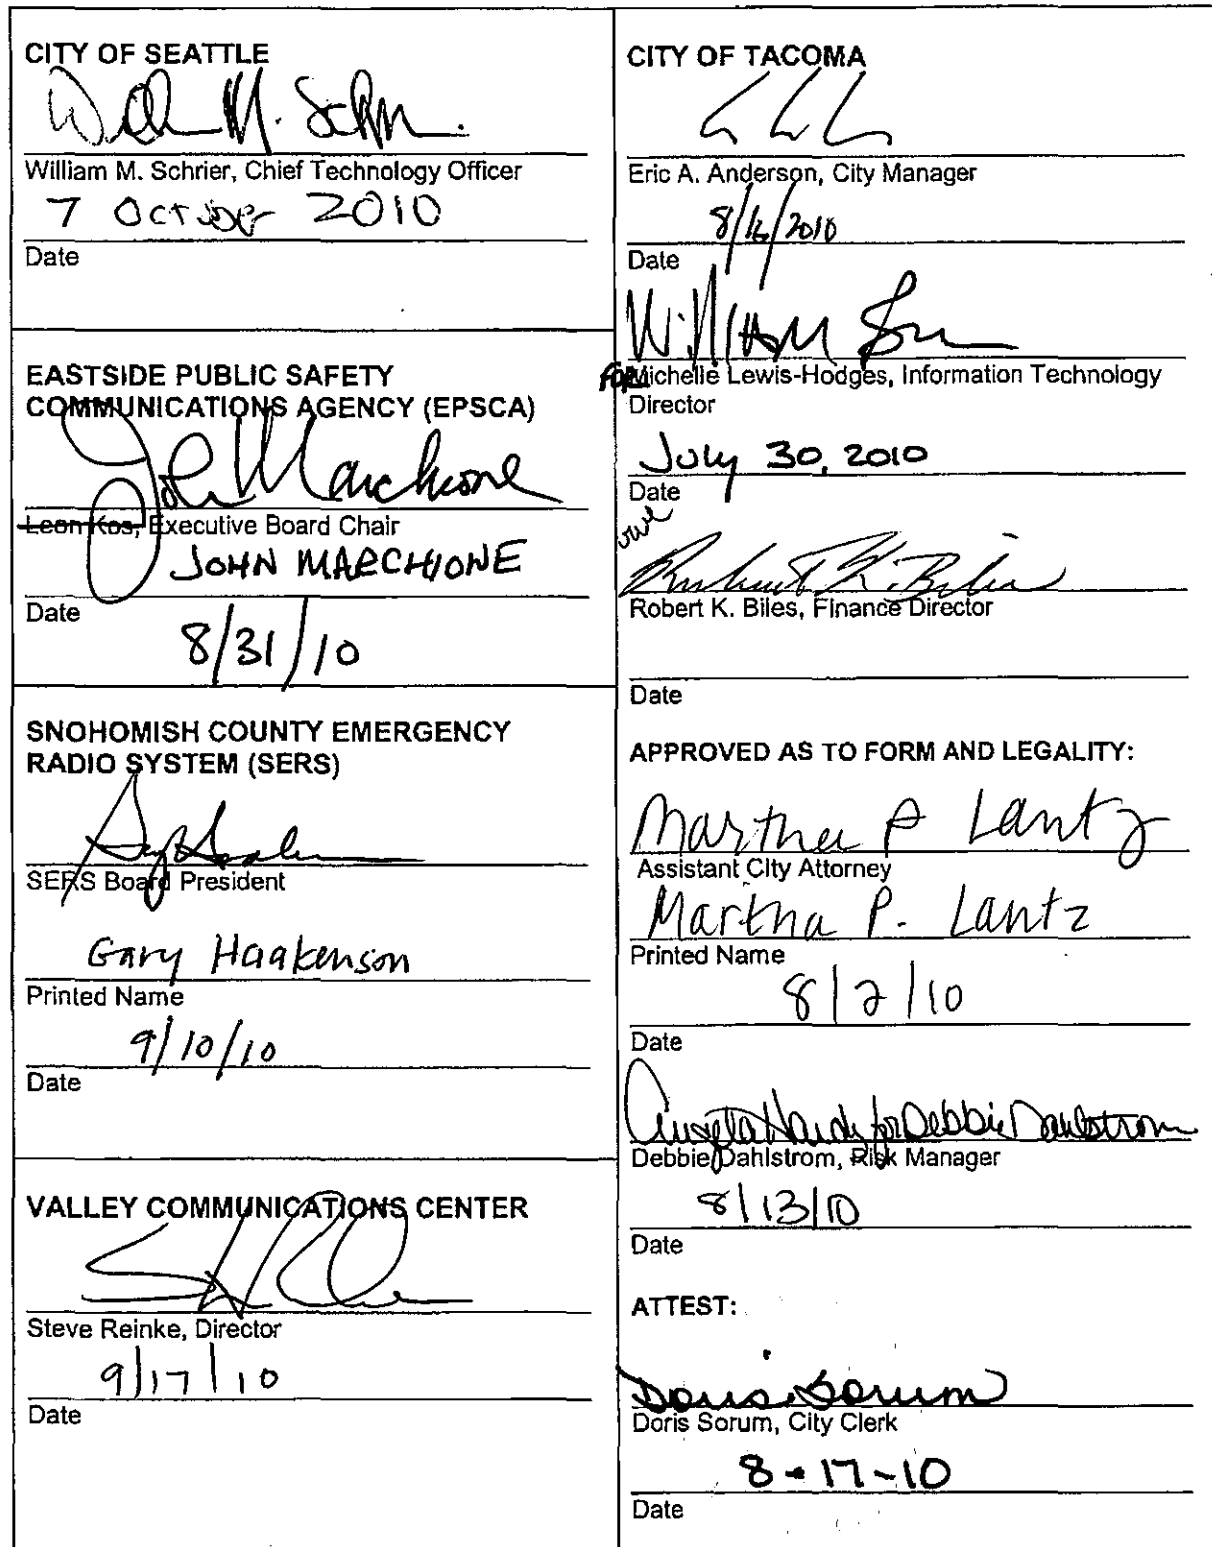 CITY OF SEATTLE
William M. Schrier, Chief Technology Officer
7 October 2010
Date
EASTSIDE PUBLIC SAFETY
COMMUNICATIONS AGENCY (EPSCA)
John Marchione
Leon Kos, Executive Board Chair
JOHN MARCHIONE
Date
8/31/10
SNOHOMISH COUNTY EMERGENCY
RADIO SYSTEM (SERS)
SERS Board President
Gary Haakenson
Printed Name
9/10/10
Date
VALLEY COMMUNICATIONS CENTER
Steve Reinke, Director
9/17/10
Date
CITY OF TACOMA
Eric A. Anderson, City Manager
8/16/2010
Date
William
FOR Michelle Lewis-Hodges, Information Technology
Director
July 30, 2010
Date
Robert K. Biles
Robert K. Biles, Finance Director
Date
APPROVED AS TO FORM AND LEGALITY:
Martha P Lantz
Assistant City Attorney
Martha P. Lantz
Printed Name
8/2/10
Date
Angela Hardy for Debbie Dahlstrom
Debbie Dahlstrom, Risk Manager
8/13/10
Date
ATTEST:
Doris Sorum
Doris Sorum, City Clerk
8-17-10
Date